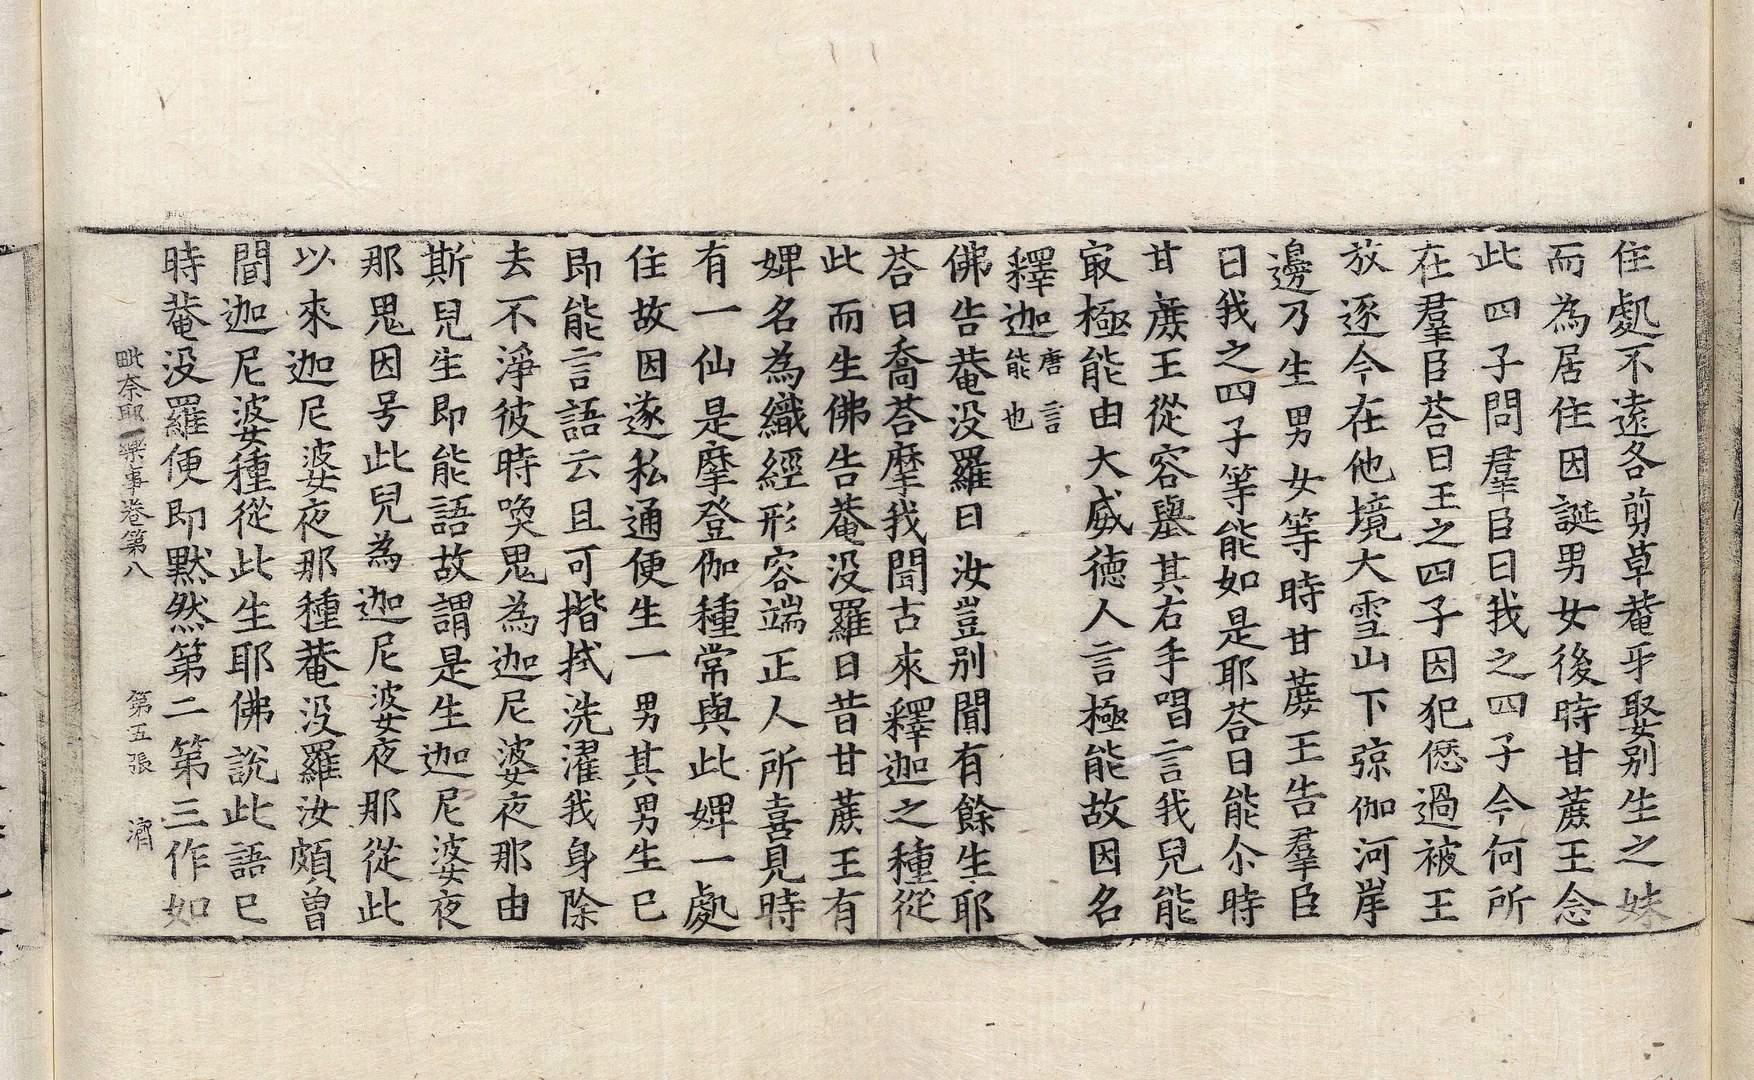 住處不遠各剪草菴乎娶別生之妹
而為居住因誕男女後時甘蔗王念
此四子問羣臣曰我之四子今何所
在羣臣荅曰王之四子因犯𠍴過被王
放逐今在他境大雪山下弶伽河岸
邊乃生男女等時甘蔗王告羣臣
曰我之四子等能如是耶荅曰能尒時
甘蔗王從容舉其右手唱言我兒能
㝡極能由大威德人言極能故因名
釋迦唐言能也
佛告菴没羅曰汝豈别聞有餘生耶
荅曰喬荅摩我聞古來釋迦之種從
此而生佛告菴没羅曰昔甘蔗王有
婢名為織經形容端正人所喜見時
有一仙是摩登伽種常與此婢一處
住故因遂私通便生一男其男生已
即能言語云且可揩拭洗濯我身除
去不淨彼時喚鬼為迦尼婆夜那由
斯兒生即能語故謂是生迦尼婆夜
那鬼因号此兒為迦尼婆夜那從此
以來迦尼婆夜那種菴没羅汝頗曾
聞迦尼婆種從此生耶佛說此語已
時菴没羅便即默然第二第三作如
毗奈耶藥事卷第八 第五張 濟